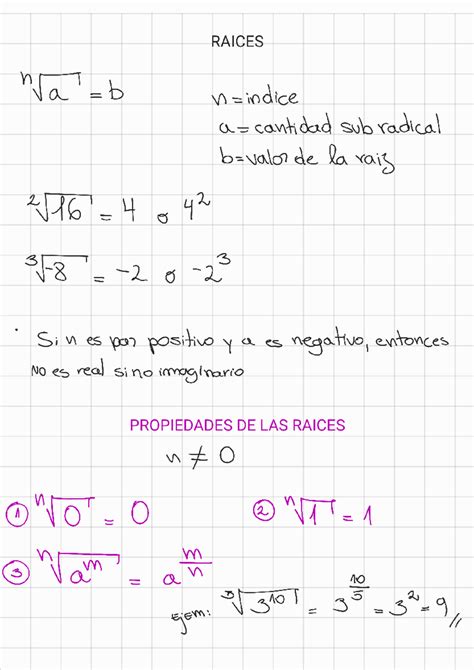 RAICES
ⁿ√a = b
n = indice
a = cantidad subradical
b = valor de la raiz
²√16 = 4 o 4²
³√-8 = -2 o -2³
· Si n es par positivo y a es negativo, entonces
NO es real sino imaginario
PROPIEDADES DE LAS RAICES
n ≠ 0
① ⁿ√0 = 0
② ⁿ√1 = 1
③ ⁿ√a^m = a^(m/n)
Ejem: ⁵√3^10 = 3^(10/5) = 3² = 9 //